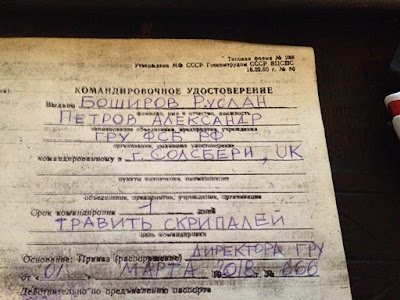 Типовая форма № 288
Утверждена МФ СССР Госкомтрудом СССР ВЦСПС
18.02.80 г. № 80
КОМАНДИРОВОЧНОЕ УДОСТОВЕРЕНИЕ
Выдано БОШИРОВ РУСЛАН
фамилия, имя и отчество, должность
ПЕТРОВ АЛЕКСАНДР
наименование объединения, предприятия, учреждения
ГРУ ФСБ РФ
организации, выдавшей удостоверение
командированному в г. СОЛСБЕРИ, UK
пункты назначения, наименование
объединения, предприятия, учреждения, организации
Срок командировки дней
ТРАВИТЬ СКРИПАЛЕЙ
цель командировки
Основание: Приказ (распоряжение) ДИРЕКТОРА ГРУ
от «01» МАРТА 2018 666
Действительно по предъявлении паспорта